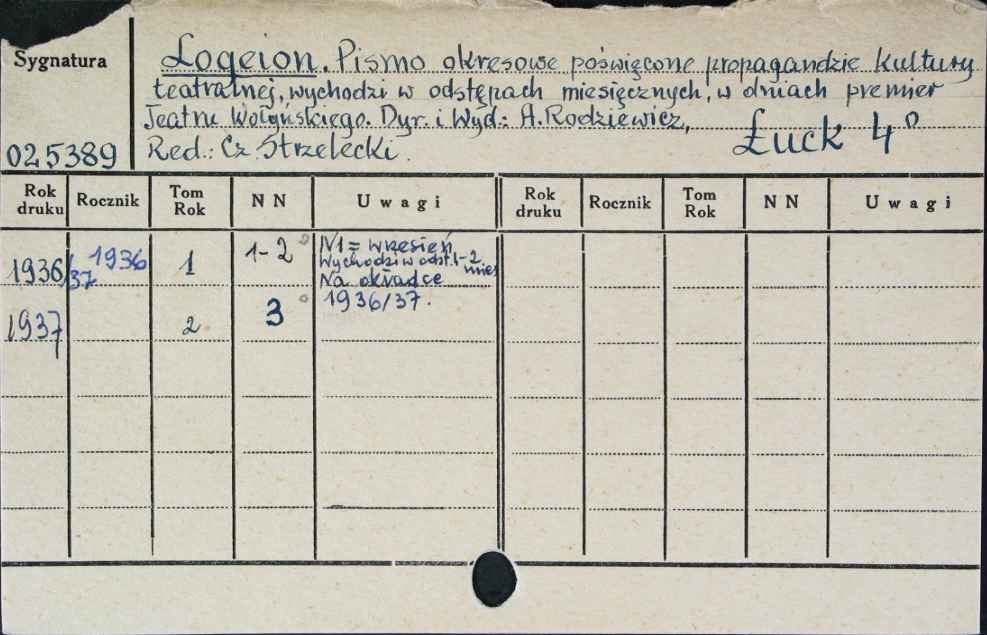 Sygnatura
Logeion. Pismo okresowe poświęcone propagandzie kultury
teatralnej, wychodzi w odstępach miesięcznych, w dniach premier
Teatru Wołyńskiego. Dyr. i Wyd.: A. Rodziewicz,
Łuck 4°
025389 Red.: Cz. Strzelecki.
Rok druku Rocznik Tom Rok N N Uwagi Rok druku Rocznik Tom Rok N N Uwagi
1936/37 1936 1 1-2° N1 = wrzesień
Wychodzi w odst. 1-2 mies
Na okładce
1936/37.
1937 2 3°